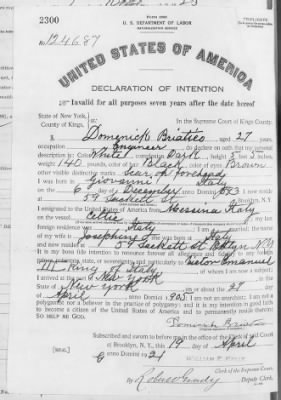 2300
Form 2203
U. S. DEPARTMENT OF LABOR
NATURALIZATION SERVICE
TRIPLICATE
No. 124687
UNITED STATES OF AMERICA
DECLARATION OF INTENTION
Invalid for all purposes seven years after the date hereof
State of New York,
County of Kings,
In the Supreme Court of Kings County.
I, Domenick Briatico aged 27 years,
occupation Engineer, do declare on oath that my personal
description is: Color White, complexion Dark, height 5 feet inches,
weight 140 pounds, color of hair Black, color of eyes Brown
other visible distinctive marks Scar on forehead
I was born in Giovanni Italy
on the 6 day of December, anno Domini 1893; I now reside
at 59 Sackett St Brooklyn, N.Y.
I emigrated to the United States of America from Messina Italy
on the vessel Celtic
foreign residence was Italy
of my wife is Josephine Italy
and now resides at 59 Sackett St Bklyn N.Y.
It is my bona fide intention to renounce forever all allegiance and fidelity to any foreign
prince, potentate, state, or sovereignty, and particularly to Victor Emanuel
III King of Italy, of whom I am now a subject;
I arrived at the port of New York
State of New York on or about the 29 day
of April, anno Domini 1903; I am not an anarchist; I am not a
polygamist nor a believer in the practice of polygamy; and it is my intention in good faith
to become a citizen of the United States of America and to permanently reside therein:
SO HELP ME GOD.
Domenick Briatico
Subscribed and sworn to before me in the office of the Clerk of said Court
at Brooklyn, N. Y., this 19 day of April
anno Domini 1921
[SEAL]
WILLIAM F.
Clerk of the Supreme Court.
By
Deputy Clerk.